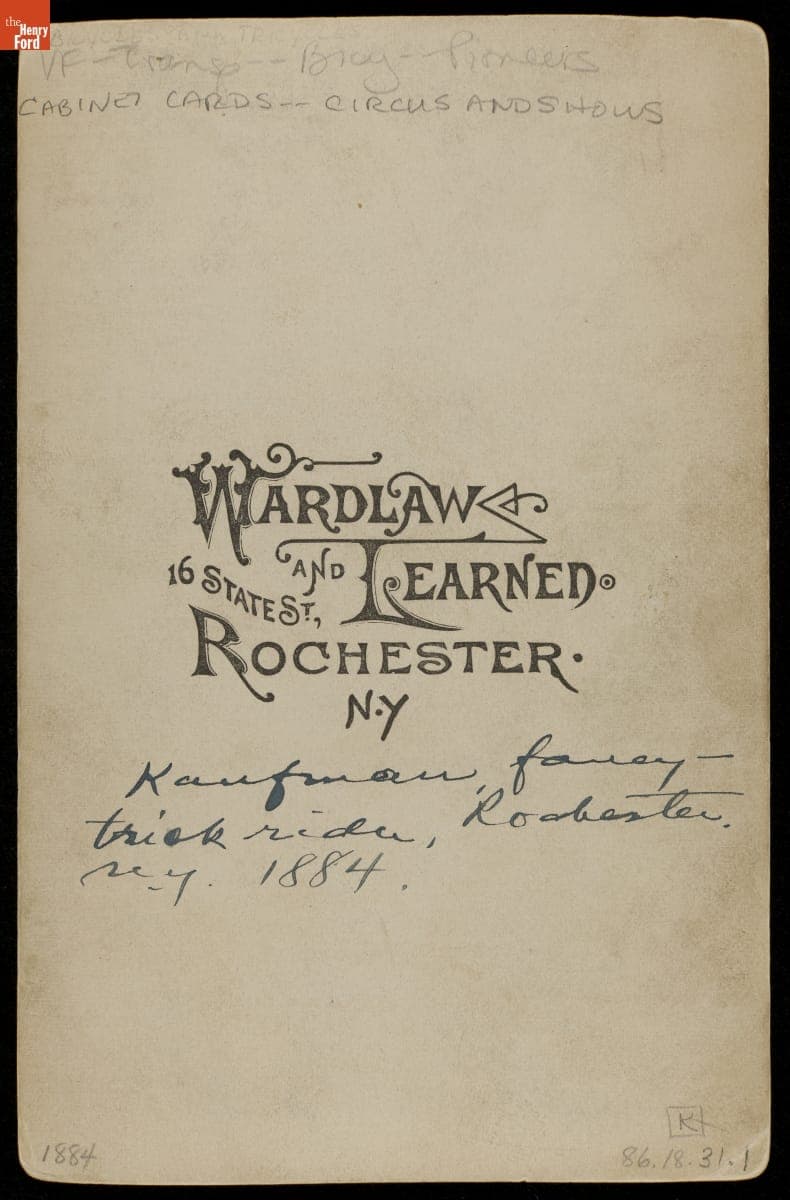 the
Henry
Ford
VF-Transp-- Bicy-- Pioneers
CABINET CARDS-- CIRCUS AND SHOWS
WARDLAW
AND LEARNED
16 STATE ST.,
ROCHESTER.
N.Y
Kaufman, fancy-
trick rider, Rochester.
N.Y. 1884.
K
1884
86.18.31.1